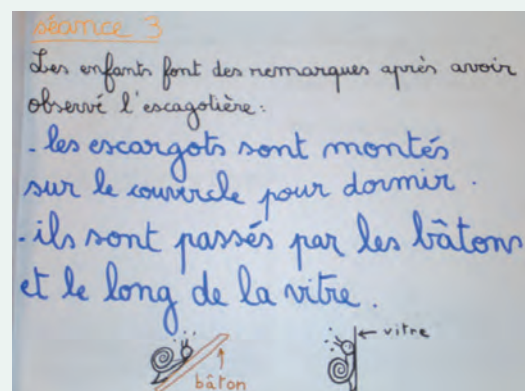 séance 3
Les enfants font des remarques après avoir
observé l'escagotière:
- les escargots sont montés
sur le couvercle pour dormir.
- ils sont passés par les bâtons
et le long de la vitre.
← vitre
bâton